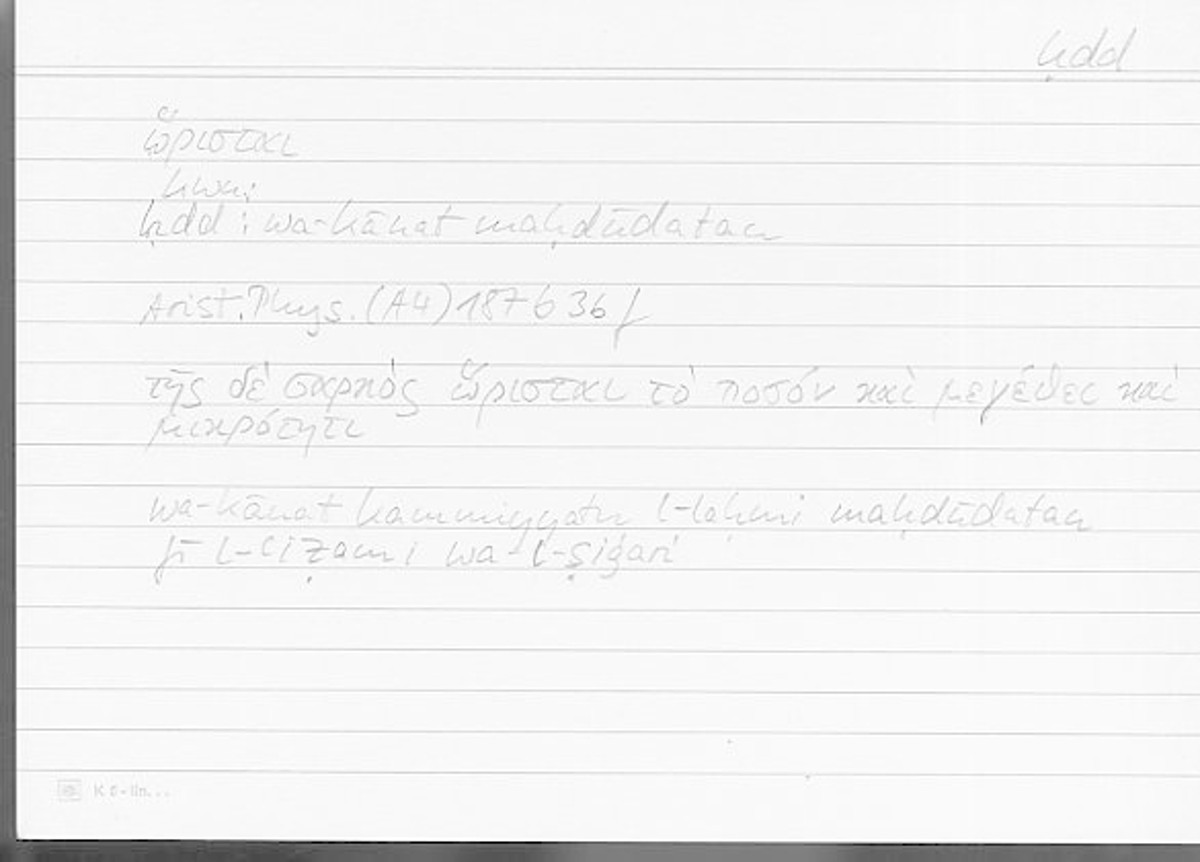 ḥdd
ὥρισται
kwn;
ḥdd ; wa-kānat maḥdūdatan
Arist. Phys. (A4) 187 b 36 f
τῆς δὲ σαρκὸς ὥρισται τὸ ποσὸν καὶ μεγέθει καὶ
μικρότητι
wa-kānat kammiyyatu l-laḥmi maḥdūdatan
fī l-ʿiẓami wa-l-ṣiġari